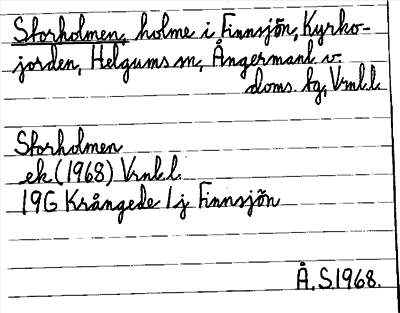 Storholmen, holme i Finnsjön, Kyrko-
jorden, Helgums sn, Ångermanl. v.
doms. tg, Vrnl.l.
Storholmen
ek (1968) Vrnl.l.
19G Krångede 1j Finnsjön
Å. S. 1968.